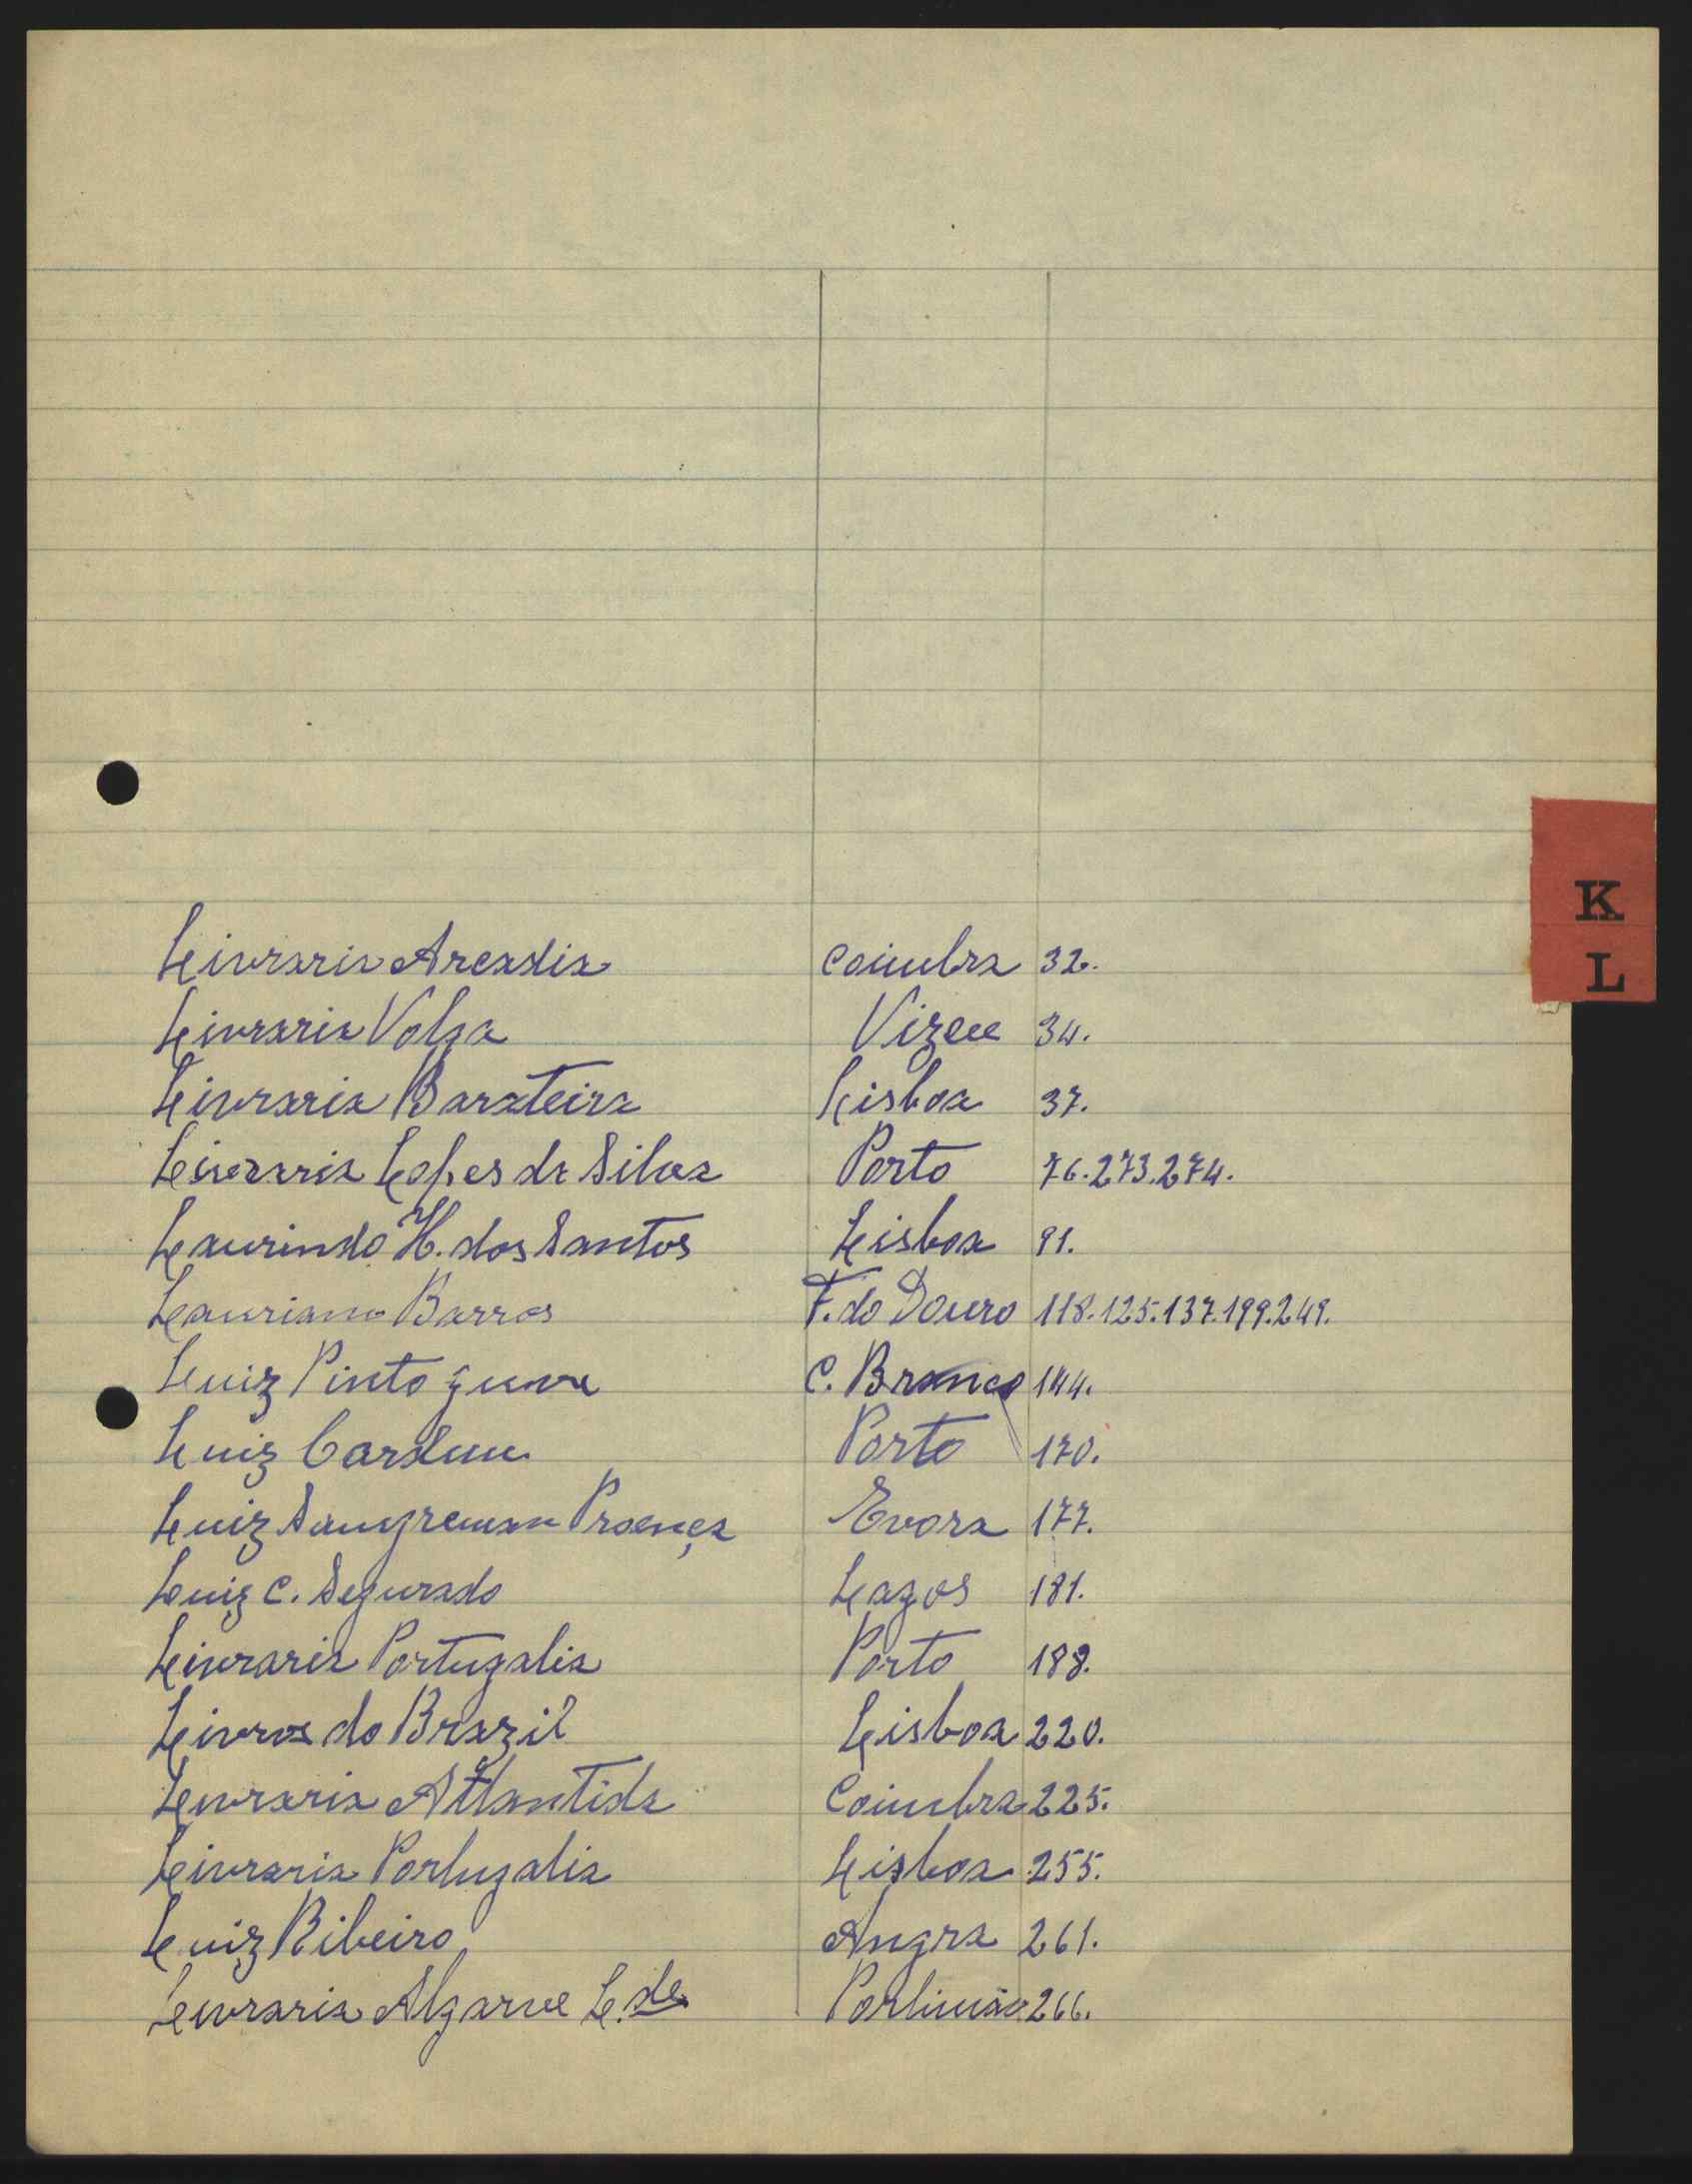 K
L
Livraria Arcadia Coimbra 32.
Livraria Volga Vizeu 34.
Livraria Barateira Lisboa 37.
Livraria Lopes da Silva Porto 76.273.274.
Laurindo H. dos Santos Lisboa 91.
Lauriano Barros F. do Douro 118.125.137.199.249.
Luiz Pinto C. Branco 144.
Luiz Cardim Porto 170.
Luiz Sangreman Proença Evora 177.
Luiz C. Segurado Lagos 181.
Livraria Portugalia Porto 188.
Livros do Brazil Lisboa 220.
Livraria Atlantida Coimbra 225.
Livraria Portugalia Lisboa 255.
Luiz Ribeiro Angra 261.
Livraria Algarve L.da Portimão 266.